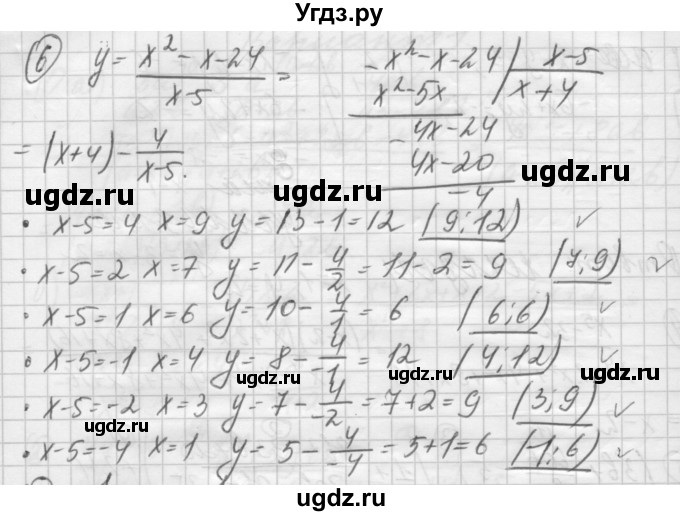 Угдз.ру
6 y = (x² - x - 24)/(x-5) =
x² - x - 24 | x-5
x² - 5x | x+4
4x - 24
4x - 20
-4
= (x+4) - 4/(x-5).
ugdz.ru ugdz.ru
• x-5=4 x=9 y=13-1=12 (9;12) ✓
• x-5=2 x=7 y=11-4/2=11-2=9 (7;9) ✓
• x-5=1 x=6 y=10-4/1=6 (6;6) ✓
• x-5=-1 x=4 y=8-4/-1=12 (4;12) ✓
ugdz.ru ugdz.ru
• x-5=-2 x=3 y=7-4/-2=7+2=9 (3;9) ✓
• x-5=-4 x=1 y=5-4/-4=5+1=6 (-1;6) ✓
ugdz.ru ugdz.ru
ugdz.ru